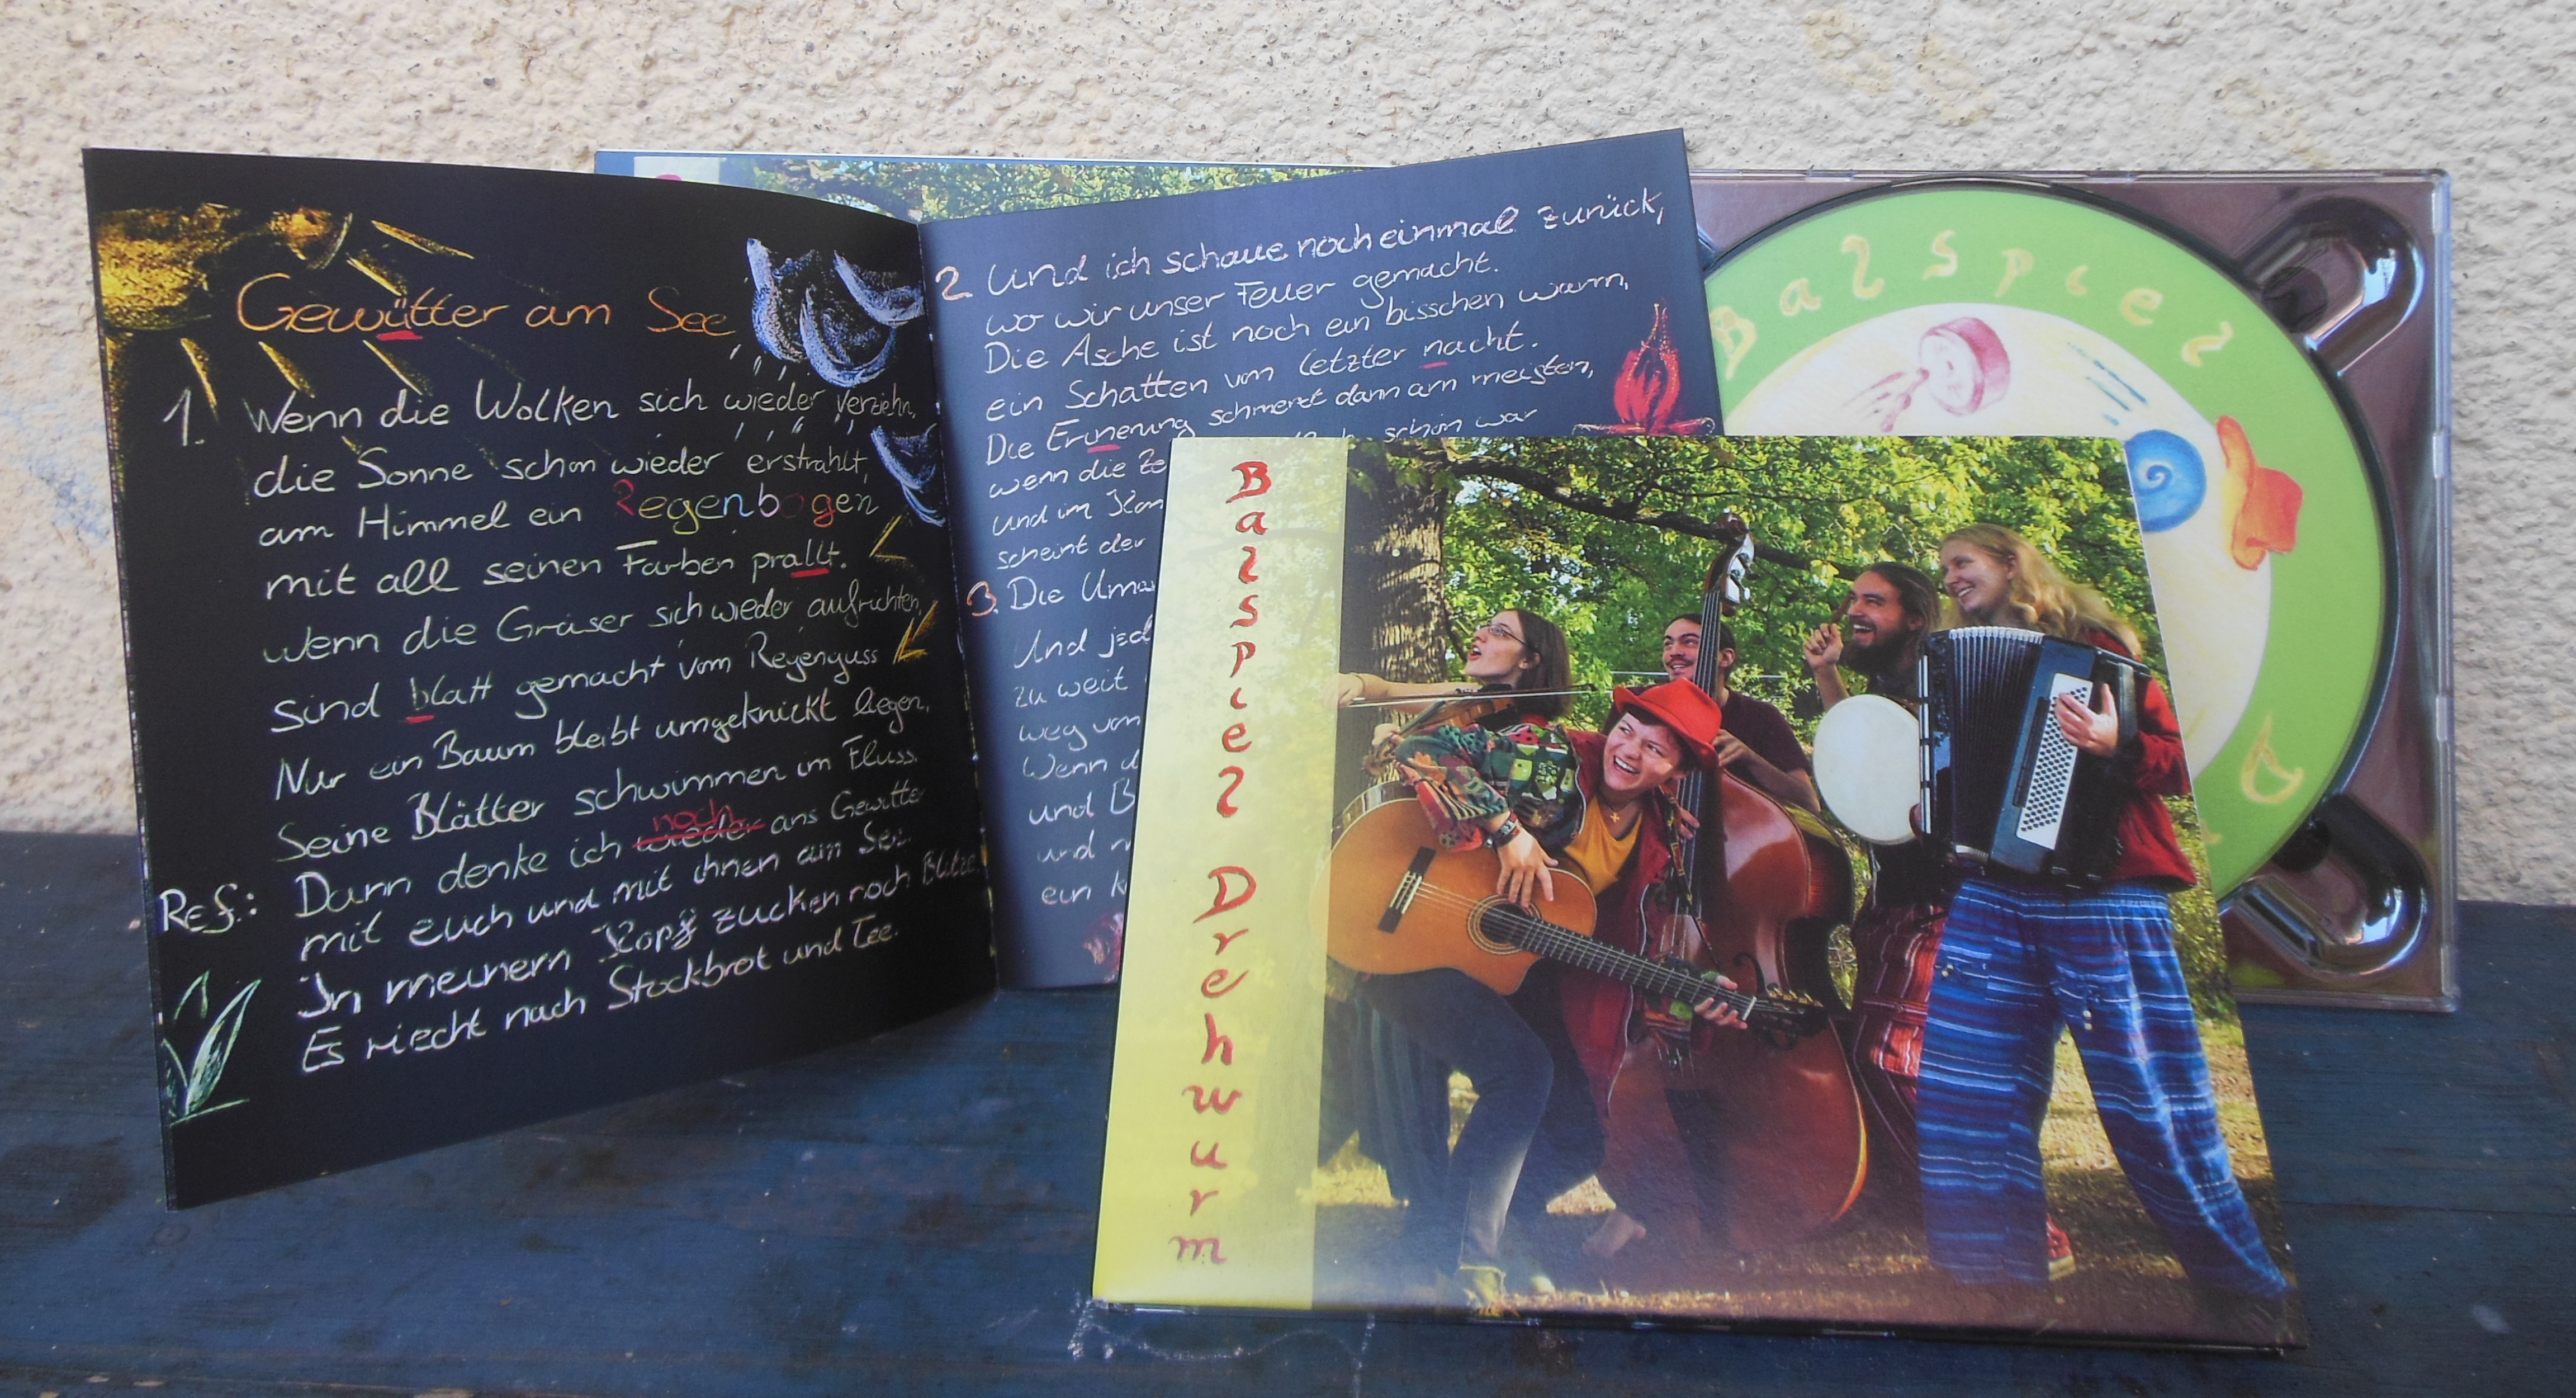 Gewütter am See
1. Wenn die Wolken sich wieder verziehn,
die Sonne schon wieder erstrahlt,
am Himmel ein Regenbogen
mit all seinen Farben prallt.
Wenn die Gräser sich wieder aufrichten,
sind blatt gemacht vom Regenguss
Nur ein Baum bleibt umgeknickt liegen,
Seine Blätter schwimmen im Fluss.
Ref.: Dann denke ich wieder noch ans Gewitter
mit euch und mit ihnen am See.
In meinem Kopf zucken noch Blitze
Es riecht nach Stockbrot und Tee.
2. Und ich schaue noch einmal zurück,
wo wir unser Feuer gemacht.
Die Asche ist noch ein bisschen warm,
ein Schatten von letzter nacht.
Die Erinerung schmerzt dann am meisten,
wenn die schön war
und im
scheint der
3. Die
Und
zu weit
weg von
Wenn
und
und
ein
Balspiel Drehwurm
Balspiel
D